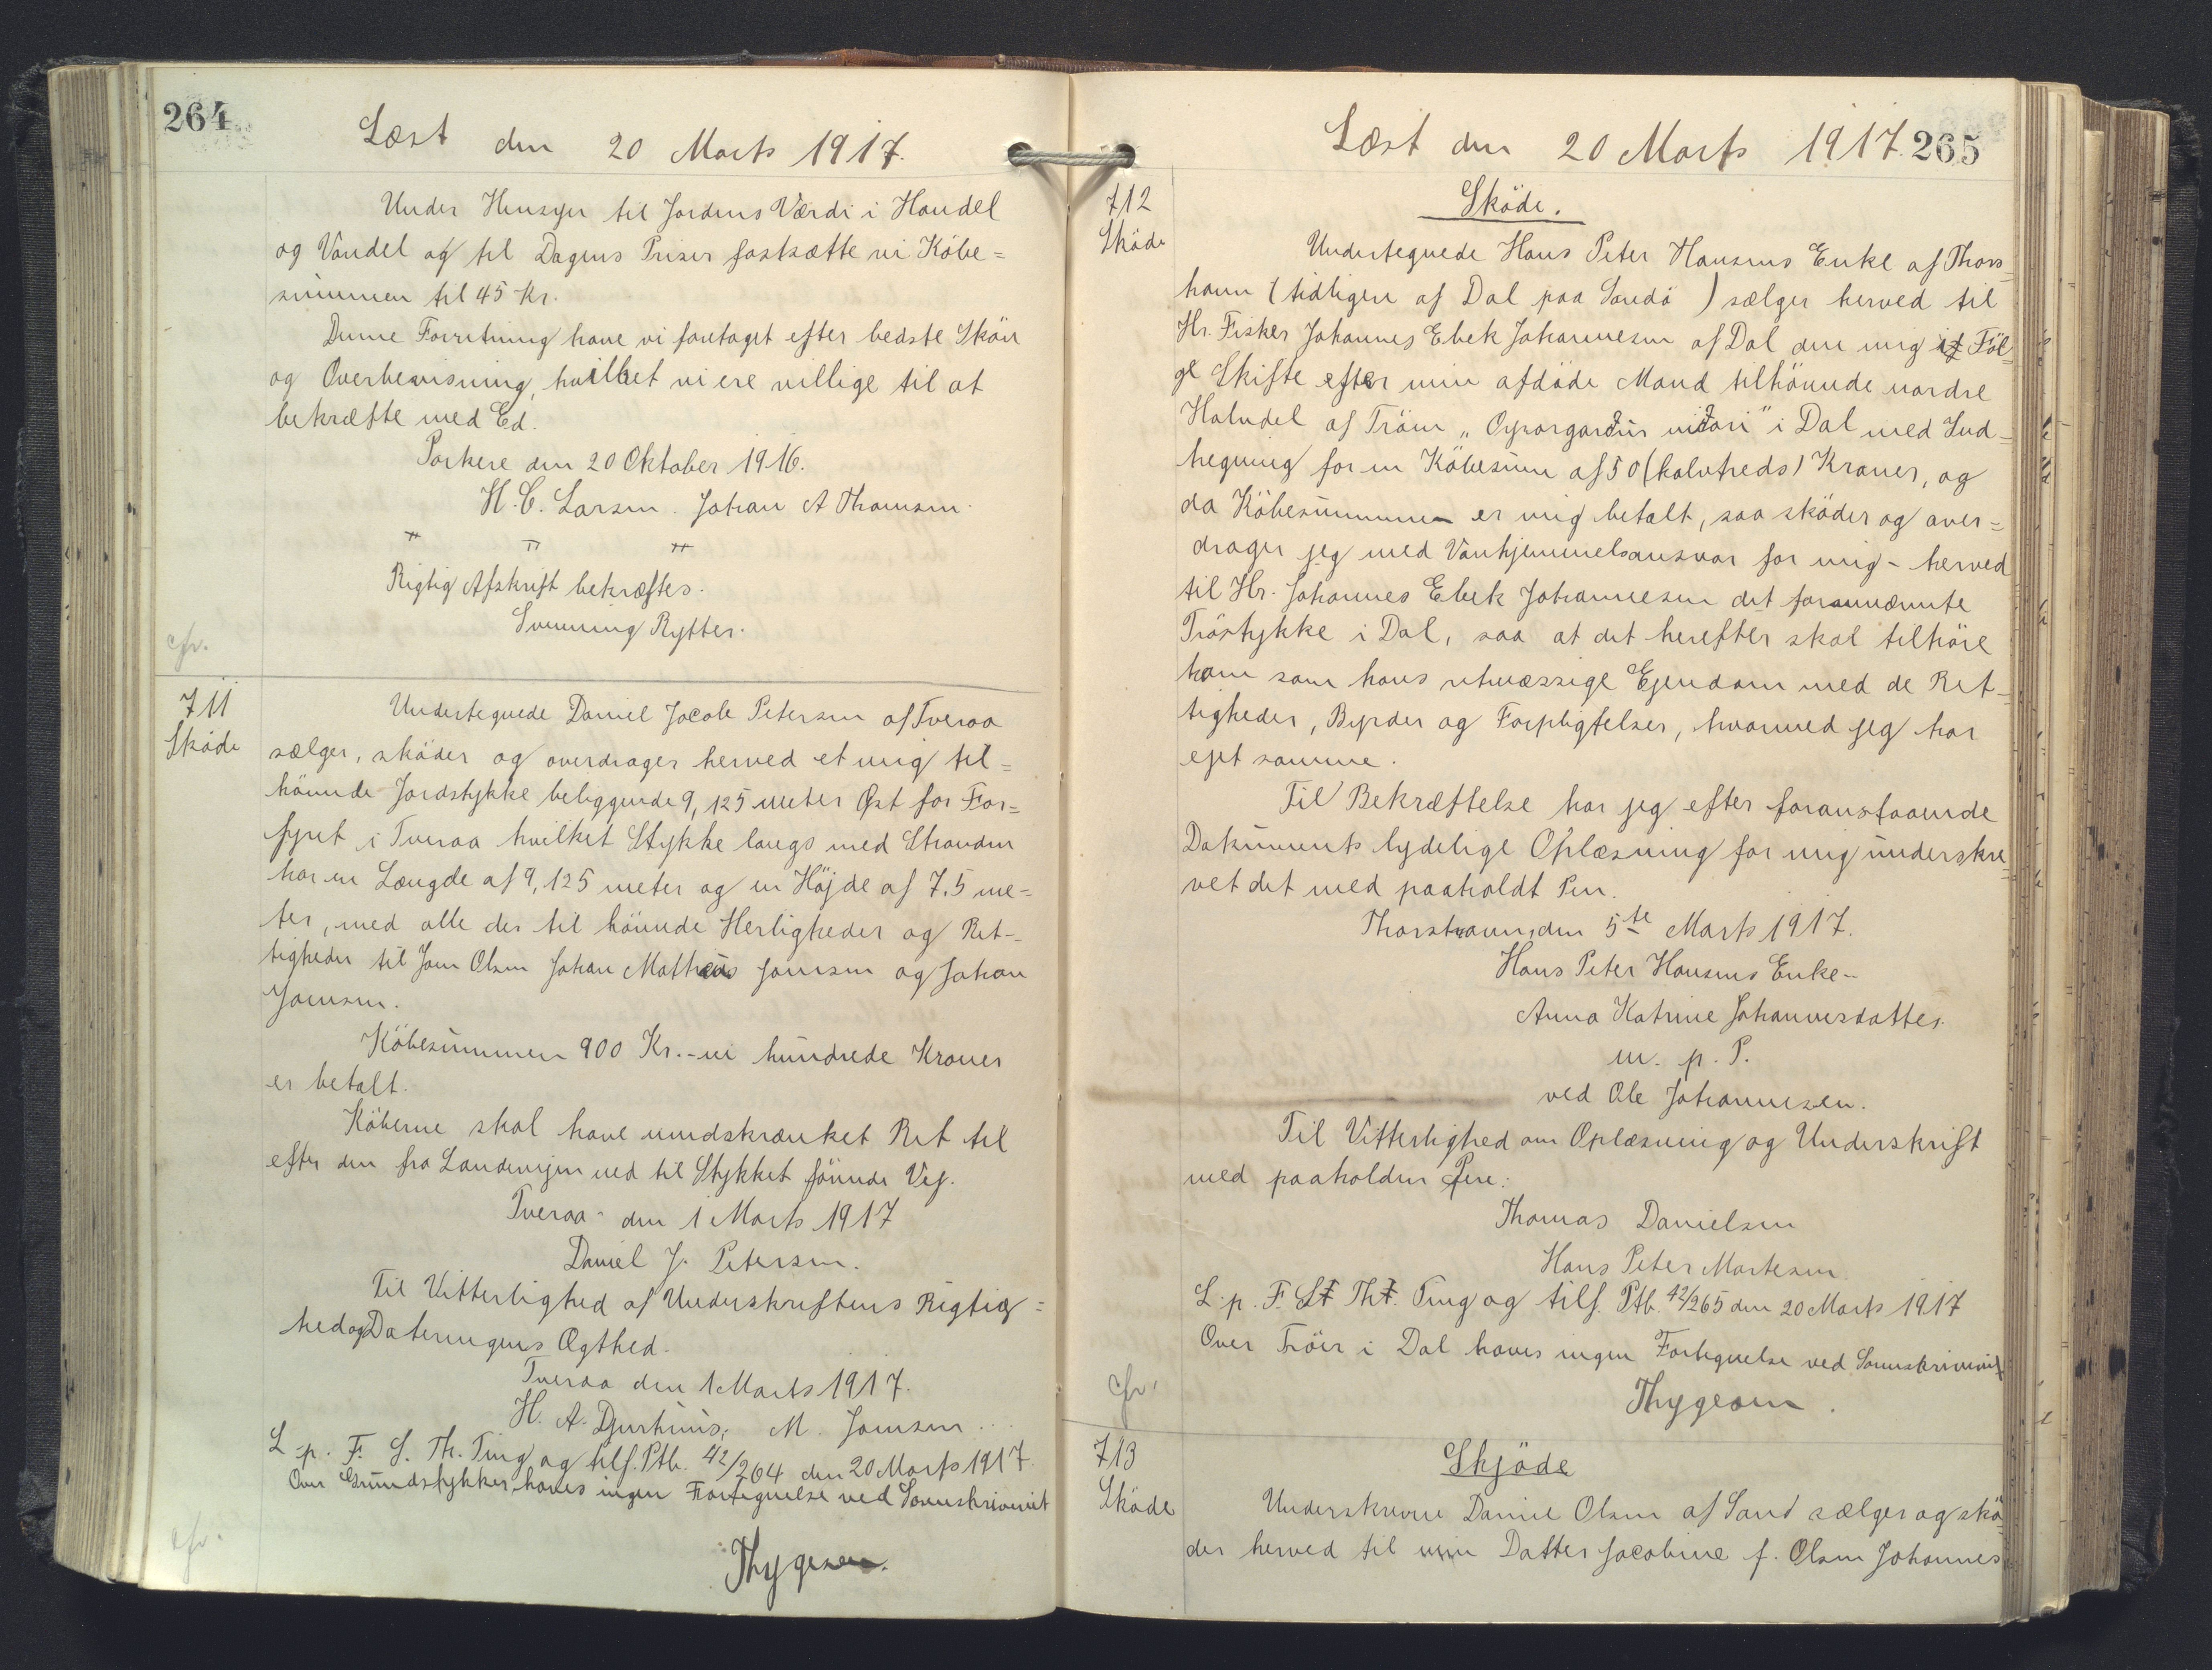 264
Læst den 20 Marts 1917.
Under Hensyn til Jordens Værdi i Handel
og Vandel og til Dagens Priser fastsætte vi Købe=
summen til 45 Kr.
Denne Forretning have vi foretaget efter bedste Skön
og Overbevisning, hvilket vi ere villige til at
bekræfte med Ed.
Porkere den 20 Oktober 1916.
H. C. Larsen. Johan A Thomsen.
" " "
Rigtig Afskrift bekræftes.
Svenning Rytter.
cfr.
711
Sköde
Undertegnede Daniel Jacob Petersen af Tveraa
sælger, sköder og overdrager herved et mig til=
hörende Jordstykke beliggende 9,125 meter Øst for For=
fyret i Tveraa hvilket Stykke langs med Stranden
har en Længde af 9,125 meter og en Höjde af 7.5 me=
ter, med alle der til hörende Herligheder og Ret-
tigheder til Joen Olsen Johan Mathæus Joensen og Johan
Joensen.
Köbesummen 900 Kr. - ni hundrede Kroner
er betalt.
Köberne skal have uindskrænket Ret til
efter den fra Landevejen ned til Stykket förende Vej.
Tveraa - den 1 Marts 1917
Daniel J. Petersen.
Til Vitterlighed af Underskriftens Rigtig=
hed og Dateringens Ægthed.
Tveraa den 1 Marts 1917.
H. A. Djurhuus, M. Joensen..
L. p. F. S. Th. Ting og tilf. Ptb. 42/264 den 20 Marts 1917.
Over Grundstykker haves ingen Fortegnelse ved Sorenskriveriet
cfr.
Thygesen.
Læst den 20 Marts 1917. 265
712
Sköde
Sköde.
Undertegnede Hans Peter Hansens Enke af Thors=
havn (tidligere af Dal paa Sandö) sælger herved til
Hr. Fisker Johannes Ebek Johannesen af Dal den mig if Föl=
ge Skifte efter min afdöde Mand tilhörende nordre
Halvdel af Tröen " i Dal med Ind=
hegning for en Köbesum af 50 (halvtreds) Kroner, og
da Köbesummen er mig betalt, saa sköder og over=
drager jeg med Vanhjemmelsansvar for mig - herved
til Hr. Johannes Ebek Johannesen det forannævnte
Tröstykke i Dal, saa at det herefter skal tilhöre
ham som hans retmæssige Ejendom med de Ret-
tigheder, Byrder og Forpligtelser, hvormed jeg har
ejet samme.
Til Bekræftelse har jeg efter foranstaaende
Dokuments lydelige Oplæsning for mig underskre
vet det med paaholdt Pen.
Thorshavn, den 5te Marts 1917.
Hans Peter Hansens Enke -
Anna Katrine Johannesdatter.
m. p. P.
ved Ole Johannesen.
Til Vitterlighed om Oplæsning og Underskrift
med paaholden Pen:
Thomas Danielsen
Hans Peter Mortesen
L. p. F. S. Th. Ting og tilf. Ptb. 42/265 den 20 Marts 1917
Over Tröer i Dal haves ingen Fortegnelse ved Sorenskriveriet
cfr.
Thygesen.
713
Sköde
Skjöde
Underskrevne Daniel Olsen af Sand sælger og skö=
der herved til min Datter Jacobine f. Olsen Johannes